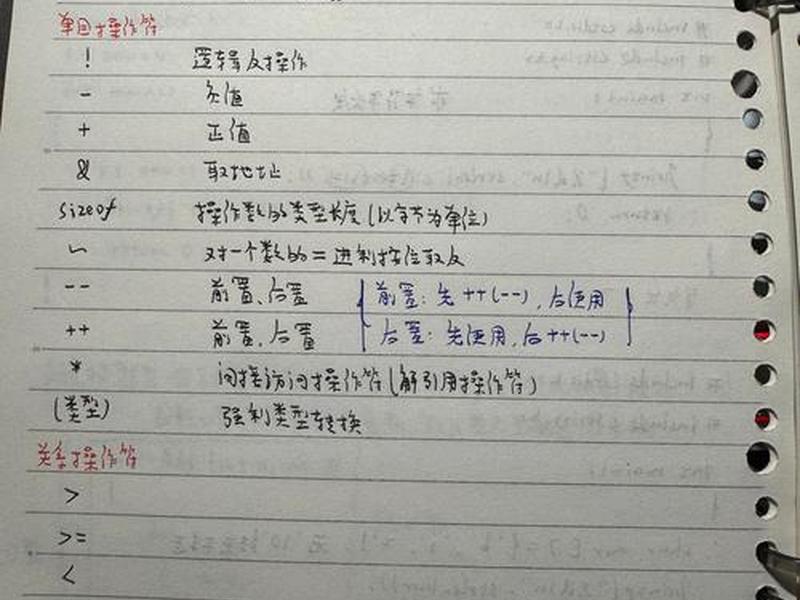 单目操作符
! 逻辑反操作
- 负值
+ 正值
& 取地址
sizeof 操作数的类型长度(以字节为单位)
~ 对一个数的二进制按位取反
-- 前置、后置 前置：先++(--)，后使用
++ 前置、后置 后置：先使用，后++(--)
* 间接访问操作符(解引用操作符)
(类型) 强制类型转换
关系操作符
>
>=
<